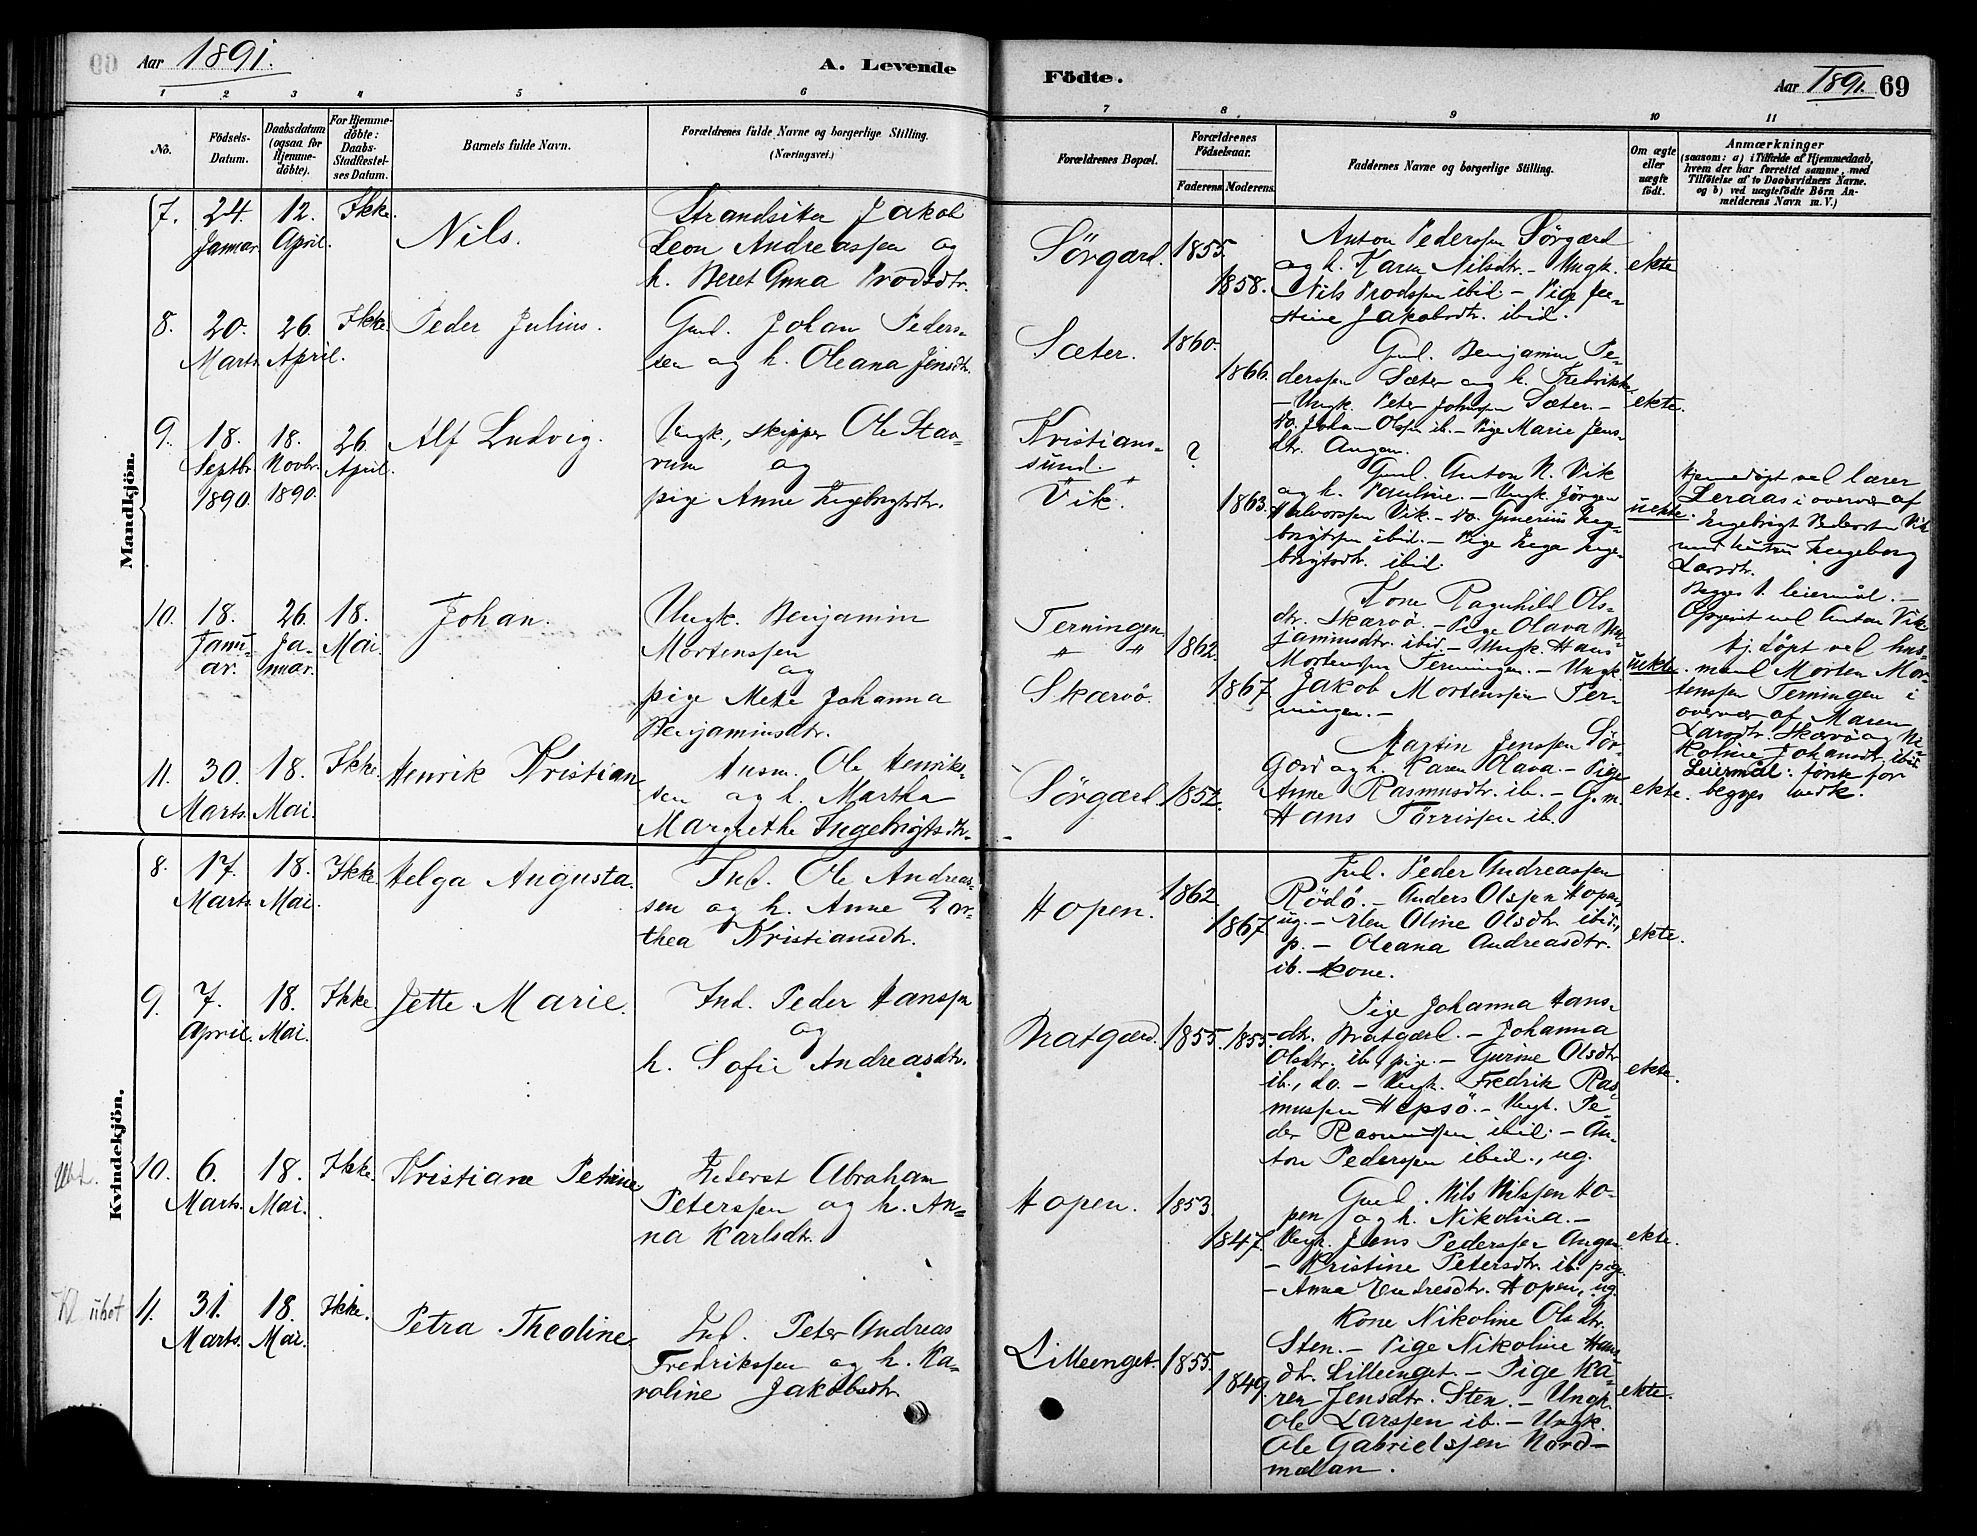 Aar 1891.
A. Levende
Födte.
Aar 1891. 69
1 2 3 4 5 6 7 8 9 10 11
No.
Födsels-
Datum.
Daabsdatum
(ogsaa for
Hjemme-
döbte).
For Hjemme-
döbte:
Daabs-
Stadfæstel-
ses Datum.
Barnets fulde Navn.
Forældrenes fulde Navne og borgerlige Stilling.
(Næringsvei.)
Forældrenes Bopæl.
Forældrenes
Födselsaar.
Faderens. Moderens.
Faddernes Navne og borgerlige Stilling.
Om ægte
eller
uægte
födt.
Anmærkninger
(saasom: a) i Tilfælde af Hjemmedaab,
hvem der har forrettet samme, med
Tilføielse af to Daabsvidners Navne.
og b) ved uægtefödte Börn An-
melderens Navn m. V.)
Mandkjön.
7.
24
Januar
12.
April.
Ikke.
Nils.
Strandsitter Jakob
Leon Andreassen og
h. Beret Anna Brodsdtr.
Sörgærd.
1855.
1858.
Anton Pederssen Sörgærd
og h. Karen Nilsdtr. - Ungk.
Nils Brodssen ibid. - Pige Ju-
stine Jakobsdtr. ibid.
ekte
8.
20.
Marts.
26
April.
Ikke
Peder Julius.
Gmd. Johan Peders-
sen og h. Oleana Jensdtr.
Sæter.
1860.
1866.
Gmd. Benjamin Pe-
derssen Sæter og h. Fredrikke
- Ungk. Peter Johnssen Sæter. -
do. Johan Olssen ib. - Pige Marie Jens-
dtr. Angen.
ekte.
9.
18.
Septbr.
1890.
18.
Novbr.
1890.
26
April.
Alf Ludvig.
Ungk., skipper Ole Stav-
rum og
pige Anne Ingebrigtsdtr.
Kristians-
sund.
Vik.
?
1863.
Gmd. Anton N. Vik
og h. Pauline. - Ungk. Jörgen
Halvorssen Vik. - do. Gunerius Inge-
brigtssen ibid. - Pige Inga Inge-
brigtsdtr. ibid.
uekte.
Hjemmedöpt ved lærer
Leraas i overvær af
Engebrigt Pedersen Vik
med hustru Ingeborg
Larsdtr.
Begges 1. leiermål. -
Opgivet ved Anton Vik
10.
18.
Janu-
ar.
26.
Ja-
nuar.
18.
Mai.
Johan.
Ungk. Benjamin
Mortenssen
og
pige Mete Johanna
Benjaminsdtr.
Terningen
" "
Skarvö.
1862.
1867
Kone Ragnhild Ols-
dtr. Skarvö. - Pige Olava Ben-
jaminsdtr. ibid. - Ungk. Hans
Mortenssen Terningen. - Ungk.
Jakob Mortenssen Ter-
ningen. -
uekte.
Hj. döpt ved hus-
mand Morten Mor-
tenssen Terningen i
overvær af Maren
Larsdtr. Skarvö og Ni-
koline Johansdtr. ibid.
Leiermål: förste for
begges vedk.
11.
30.
Marts.
18.
Mai.
Ikke.
Henrik Kristian
Husm. Ole Henriks-
sen og h. Martha
Margrethe Ingebrigtsdtr.
Sörgærd
1852.
Martin Jenssen Sör-
gærd og h. Karen Olava. - Pige
Anne Rasmusdtr. ib. - G.m.
Hans Törrissen ib.
ekte.
Kvindekjön.
8.
17.
Marts.
18.
Mai.
Ikke.
Helga Augusta.
Ind. Ole Andreas-
sen og h. Anne Dor-
thea Kristiansdtr.
Hopen.
1862.
1867.
Ind. Peder Andreassen
Rödö. - Anders Olssen Hopen,
ug. - Elen Oline Olsdtr. ibid.,
p. - Oleana Andreasdtr.
ib. kone.
ekte.
9.
7.
April.
18.
Mai.
Ikke.
Jette Marie.
Ind. Peder Hanssen
og
h. Sofie Andreasdtr.
Bratgærd.
1855.
1855.
Pige Johanna Hans-
dtr. Bratgærd. - Johanna
Olsdtr. ib., pige. - Gurine Olsdtr.
ib., do. - Ungk. Fredrik Ras-
mussen Hepsö. - Ungk. Pe-
der Rasmussen ibid. - An-
ton Pederssen ibid., ug.
ekte.
10.
6.
Marts.
18.
Mai.
Ikke.
Kristiane Petrine
Inderst Abraham
Peterssen og h. An-
na Karlsdtr.
Hopen.
1853
1847.
Gmd. Nils Nilssen Ho-
pen og h. Nikolina. -
Ungk. Jens Pederssen Angen.
- Kristine Petersdtr. ib. pige
- Anna Endresdtr. Hopen, ug.
ekte.
11.
31.
Marts.
18.
Mai.
Ikke.
Petra Theoline
Ind. Peter Andreas
Fredrikssen og h. Ka-
roline Jakobsdtr.
Lilleenget.
1855.
1849.
Kone Nikoline Olsdtr.
Sten. - Pige Nikoline Hans-
dtr. Lilleenget. - Pige Ka-
ren Jensdtr. Sten. - Ungk.
Ole Larssen ib. - Ungk.
Ole Gabrielssen Nord-
mælan.
ekte.